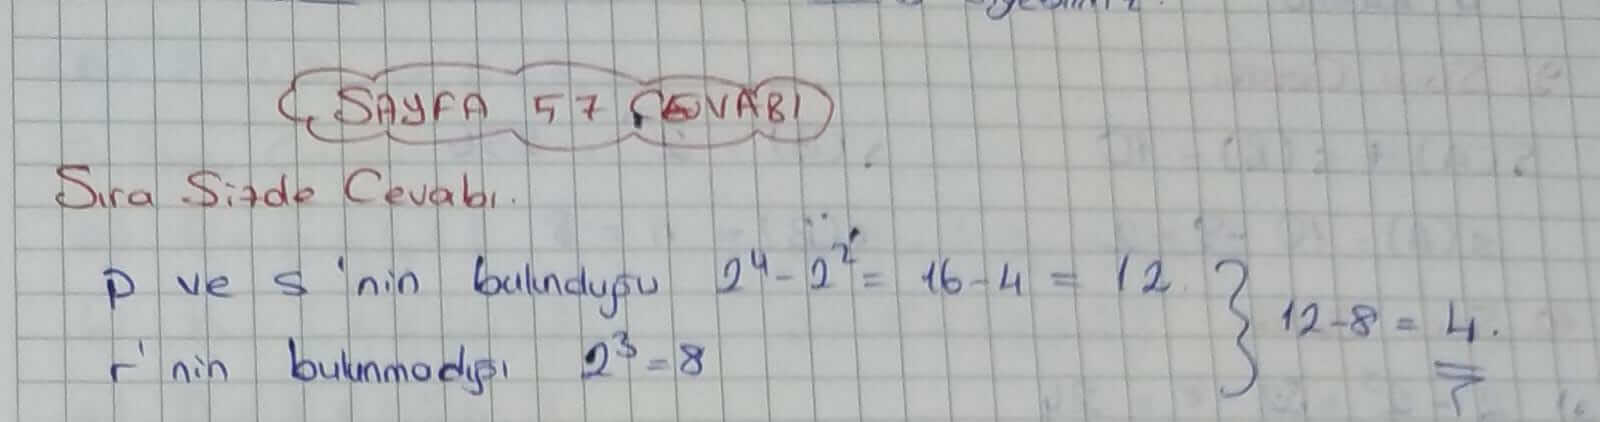 SAYFA 57 CEVABI
Sıra Sizde Cevabı.
p ve s'nin bulunduğu 2⁴ - 2² = 16 - 4 = 12
r'nin bulunmadığı 2³ = 8
} 12 - 8 = 4.